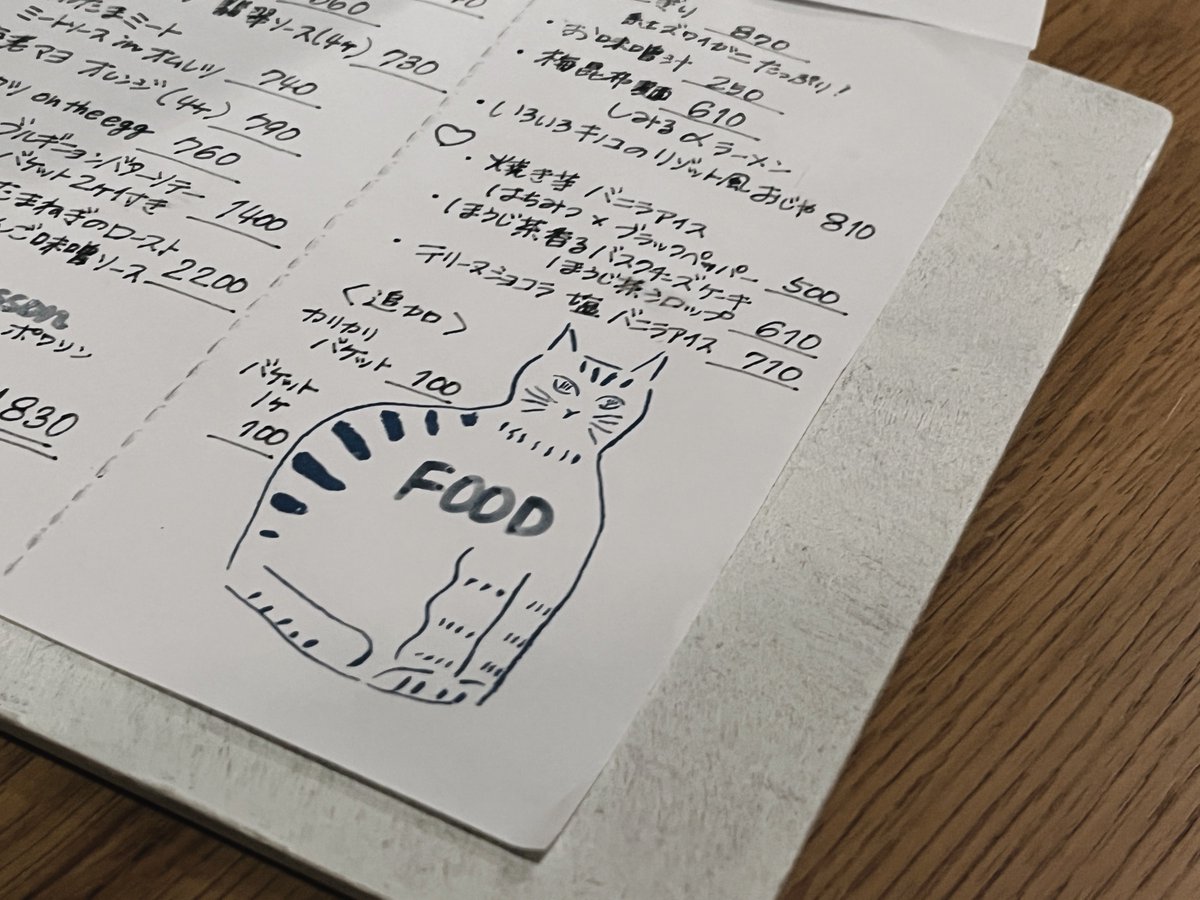 たまミート
ミートソース in オムレツ 740
マヨ オレンジ(4ヶ) 790
on the egg 760
ブルギニョンバターソテー
バゲット2ケ付き 1400
たまねぎのロースト
味噌ソース 2200
ポワソン
1830
ソース(4ヶ) 730
870
紅ズワイがに たっぷり!
お味噌汁 250
梅昆布麺 610
しみるαラーメン
いろいろキノコのリゾット風おじや 810
♡
・焼き芋 バニラアイス
はちみつ×ブラックペッパー 500
・ほうじ茶香るバスクチーズケーキ
ほうじ茶シロップ 610
・テリーヌショコラ 塩 バニラアイス 710
〈追加〉
カリカリ
バゲット 100
バゲット
1ヶ
100
FOOD